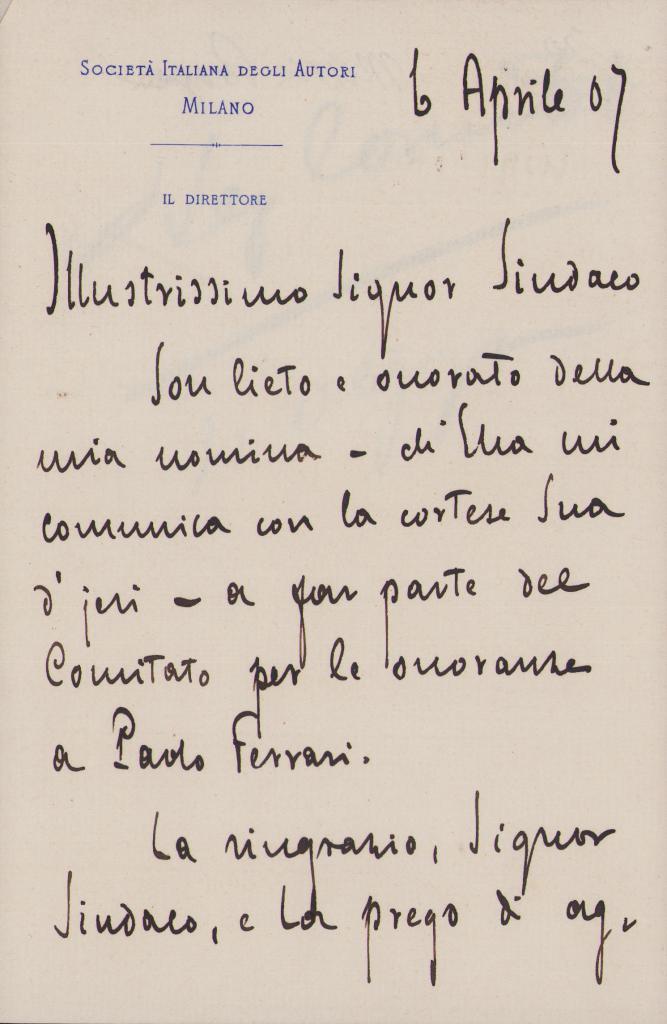 SOCIETÀ ITALIANA DEGLI AUTORI
MILANO
IL DIRETTORE
6 Aprile 07
Illustrissimo Signor Sindaco
Son lieto e onorato della
mia nomina - ch'Ella mi
comunica con la cortese Sua
d'jeri - a far parte del
Comitato per le onoranze
a Paolo Ferrari.
La ringrazio, Signor
Sindaco, e La prego di ag-